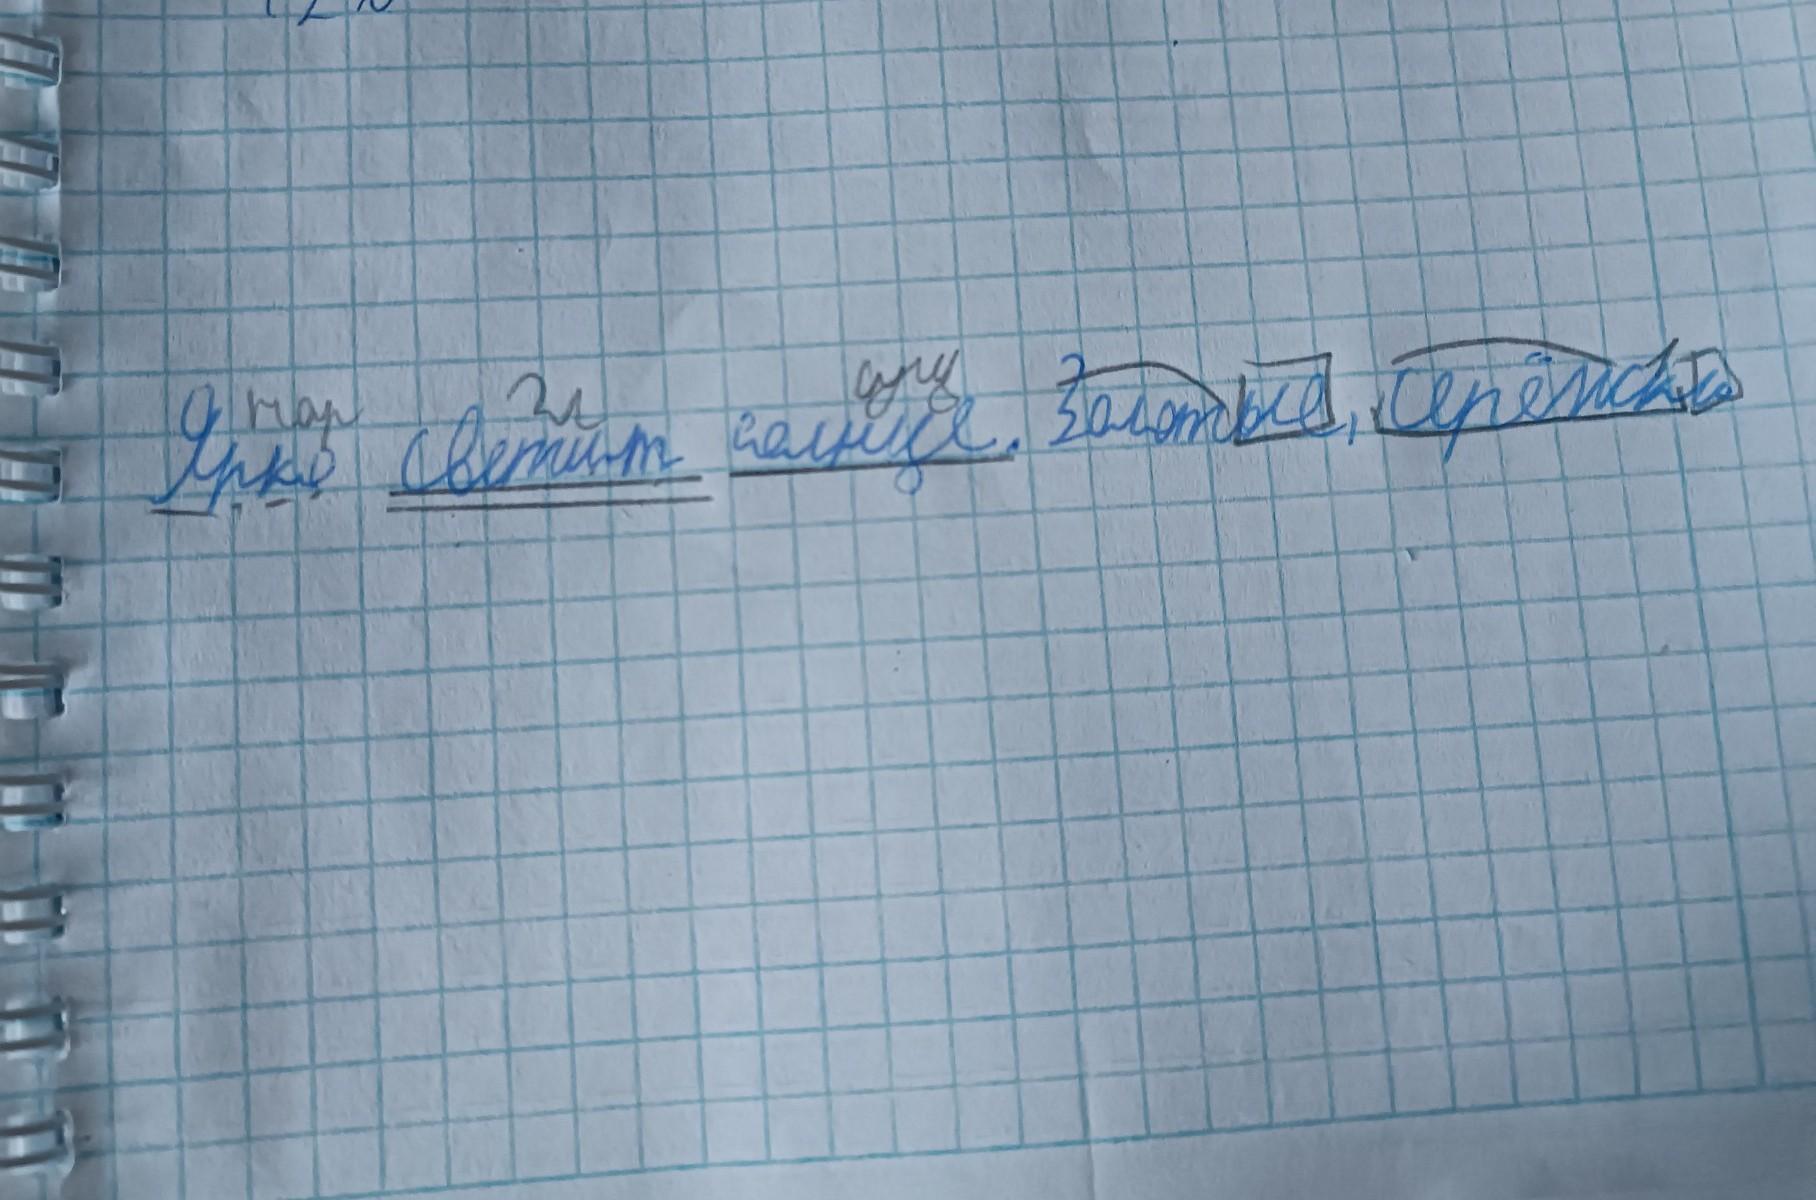 нар гл сущ 3
Ярко светит солнце. Золотые, серёжки